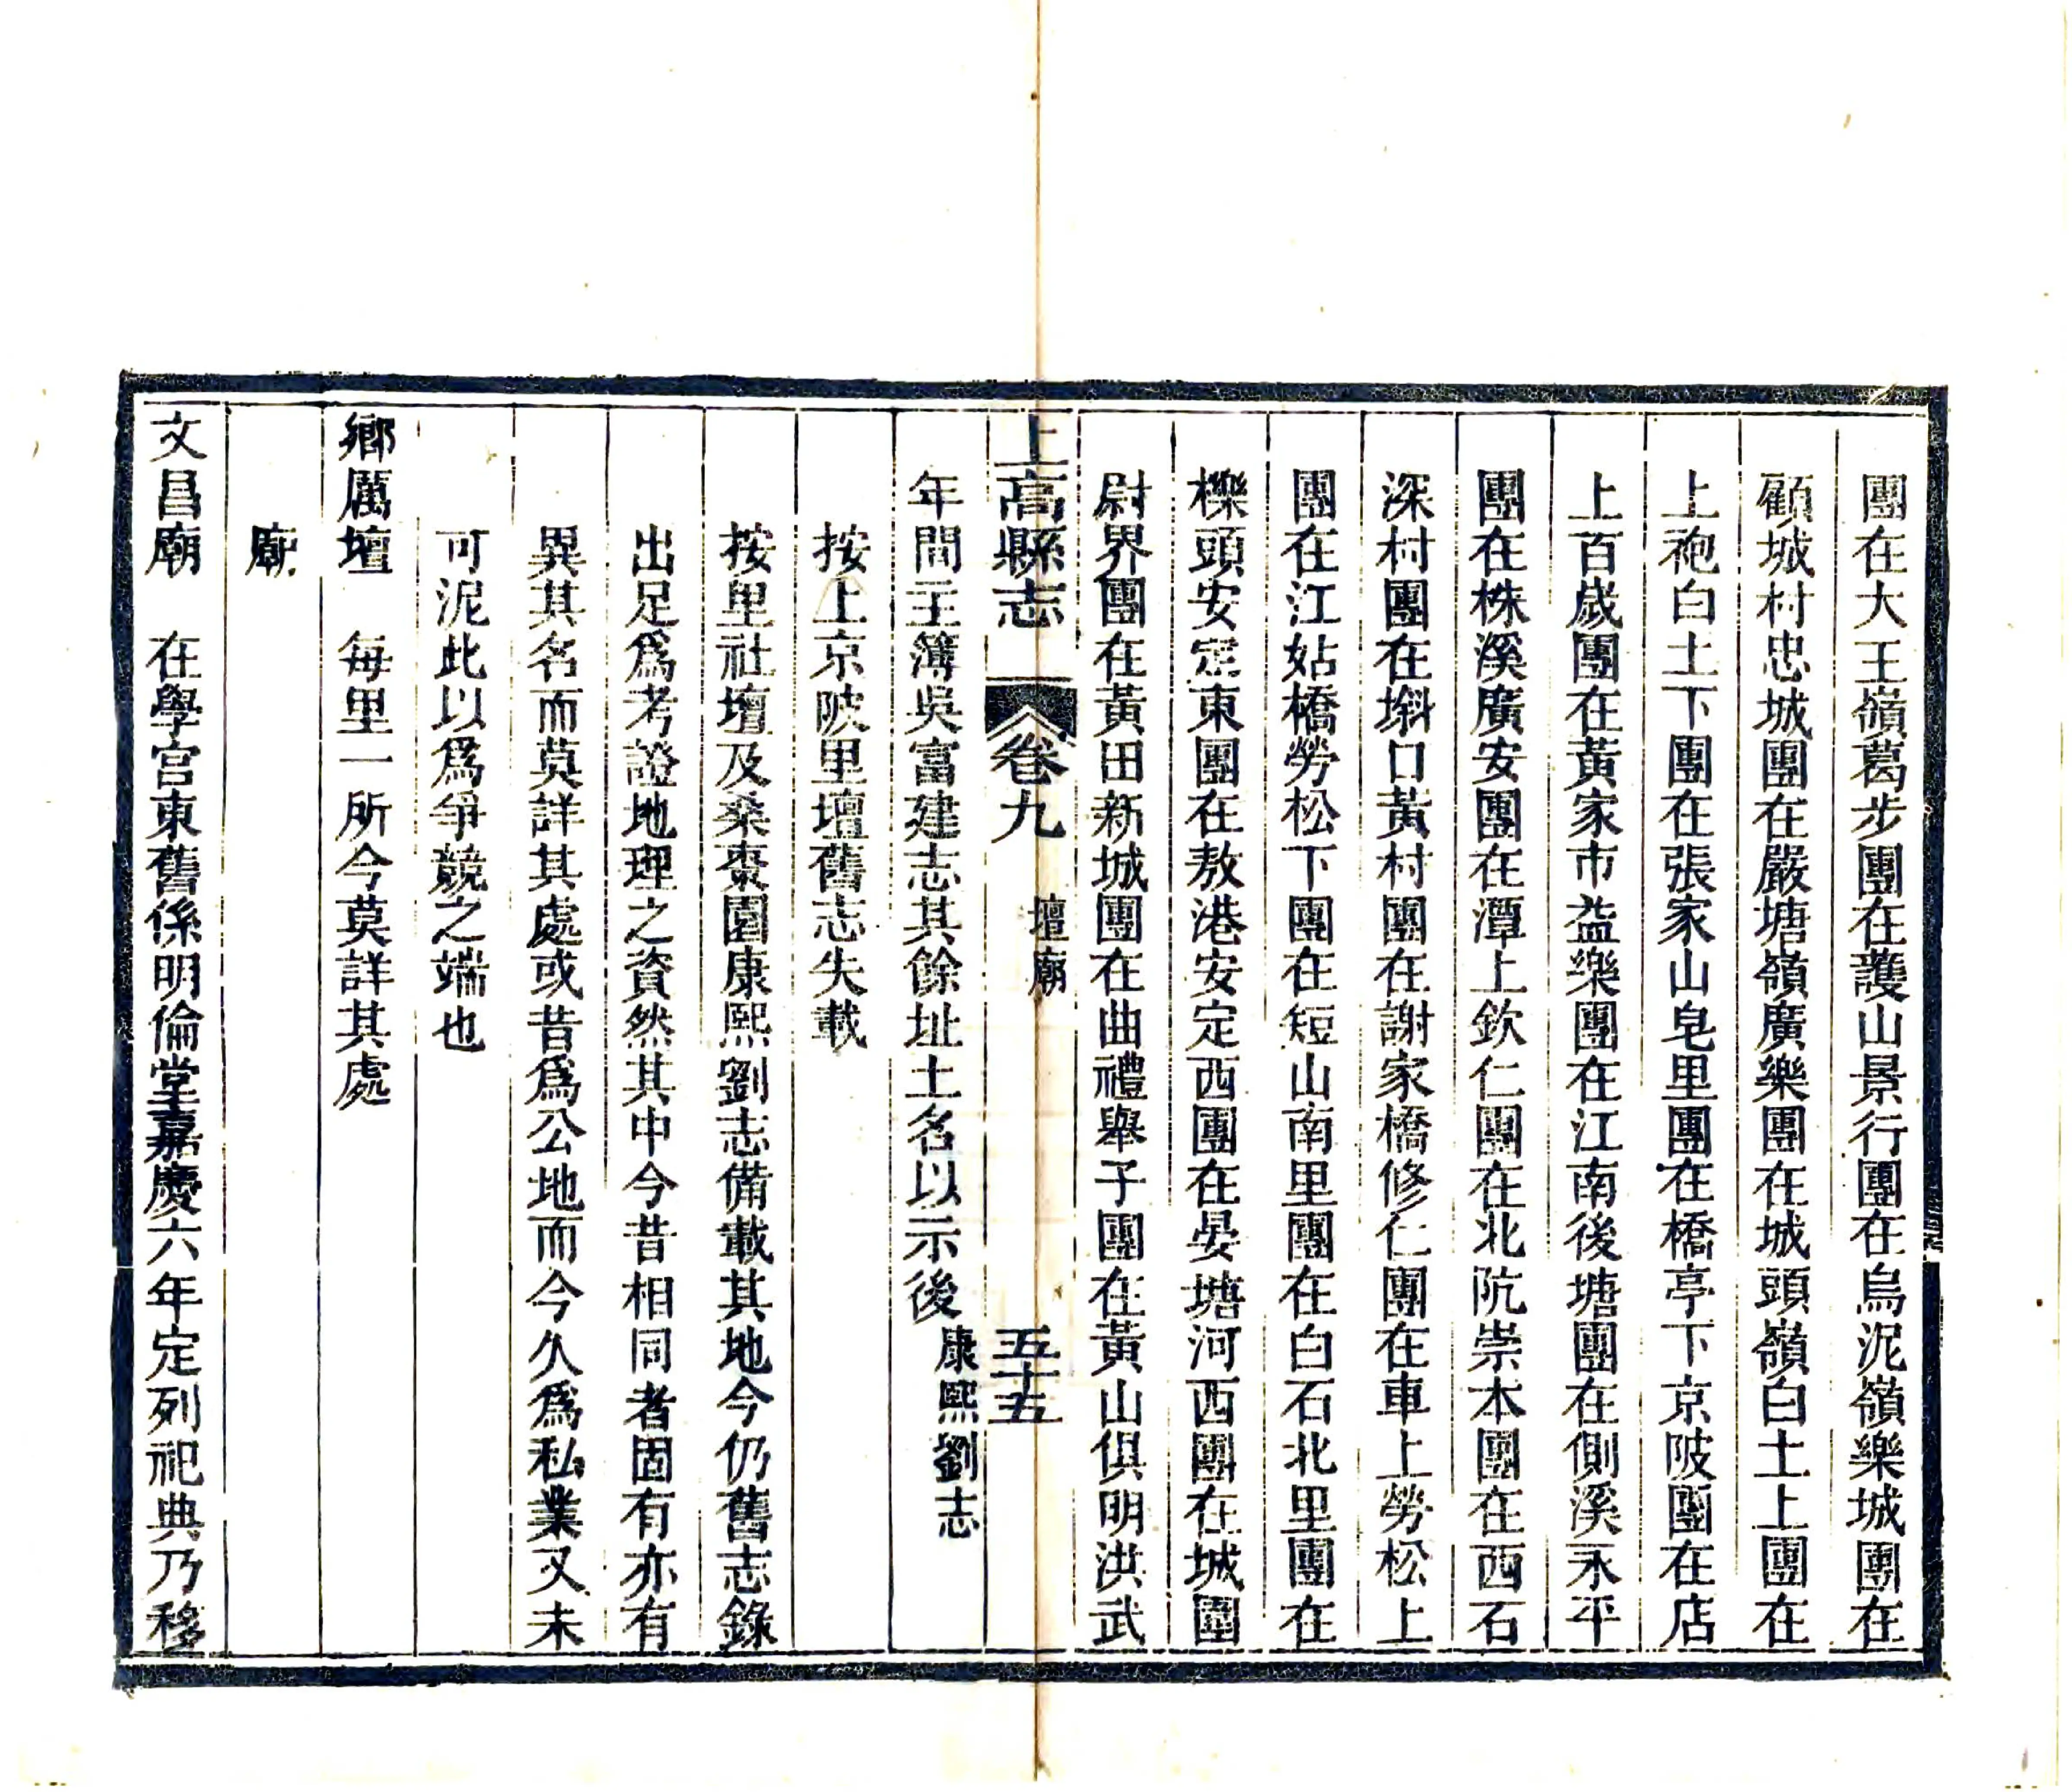 團在大王嶺葛步團在護山景行團在烏泥嶺樂城團在
顧城村忠城團在嚴塘嶺廣樂團在城頭嶺白土上團在
上袍白土下團在張家山皂里團在橋亭下京陂團在店
上百歲團在黃家市益樂團在江南後塘團在側溪永平
團在株溪廣安團在潭上欽仁團在北阬崇本團在西石
深村團在㘰口黃村團在謝家橋修仁團在車上勞松上
團在江姑橋勞松下團在短山南里團在白石北里團在
櫟頭安定東團在敖港安定西團在晏塘河西團在城圍
尉界團在黃田新城團在曲禮舉子團在黃山俱明洪武
上高縣志 卷九 壇廟 五十五
年間主簿吳富建志其餘址土名以示後 康熙劉志
按上京陂里壇舊志失載
按里社壇及桑棗園康熙劉志備載其地今仍舊志錄
出足爲考證地理之資然其中今昔相同者固有亦有
異其名而莫詳其處或昔爲公地而今久爲私業又未
可泥此以爲爭競之端也
鄉厲壇 每里一所今莫詳其處
廟
文昌廟 在學宮東舊係明倫堂嘉慶六年定列祀典乃移